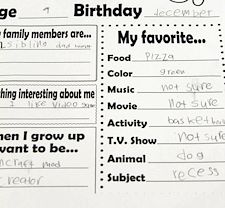 ge 9 Birthday december
family members are...
sibling dad
My favorite...
Food Pizza
Color green
thing interesting about me
Music not sure
i like video
Movie not sure
Activity basket
hen I grow up
T.V. Show not sure
want to be...
Animal dog
mod
Subject recess
creator